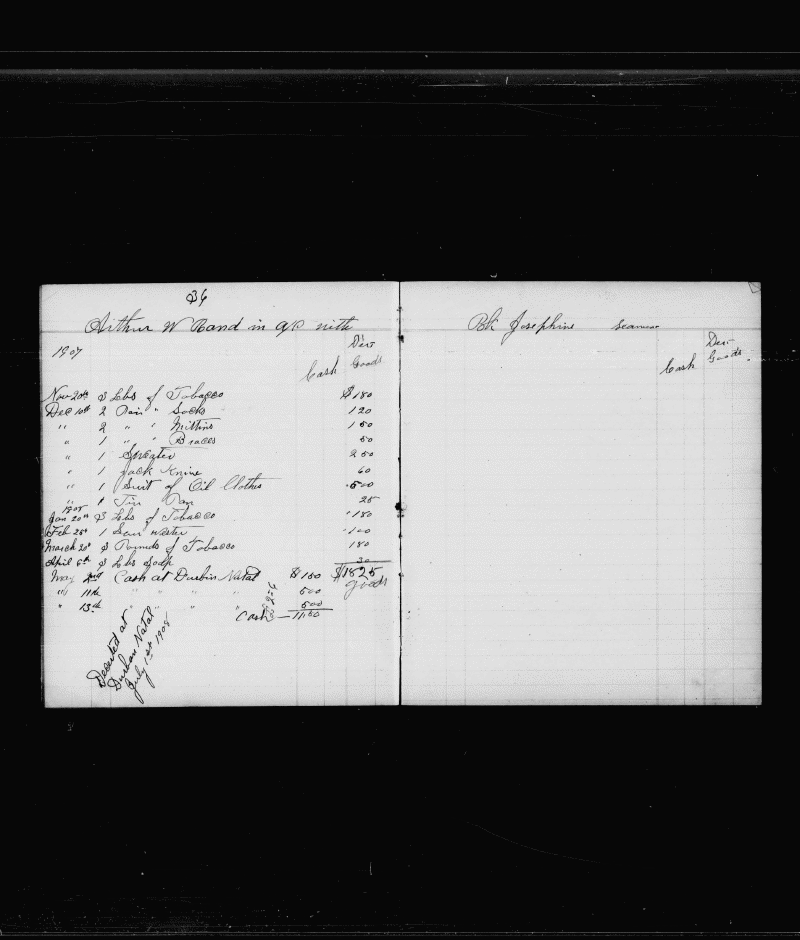 36
Arthur W Rand in a/c with
Bk Josephine Seaman
1907
Dev
Cash Goods
Dev
Cash Goods
Nov 20th 3 Lbs of Tobacco $180
Dec 10th 2 Pair " Socks 120
" 2 " " Mittins 150
" 1 " " Braces 50
" 1 Sweater 250
" 1 Jack Knive 60
" 1 Suit of Oil Clothes 500
" 1 Tin Pan 25
1908
Jan 20th 3 Lbs of Tobacco 180
Feb 28th 1 Sou Wester 100
March 20th 3 Pounds of Tobacco 180
April 6th 3 Lbs Soap 30
May 2nd Cash at Durbin Natal $150 $1825
" 11th " " " " 500 goods
" 13th " " " " 500
Cash — 1150
Deserted at
Durban Natal
July 1st 1908